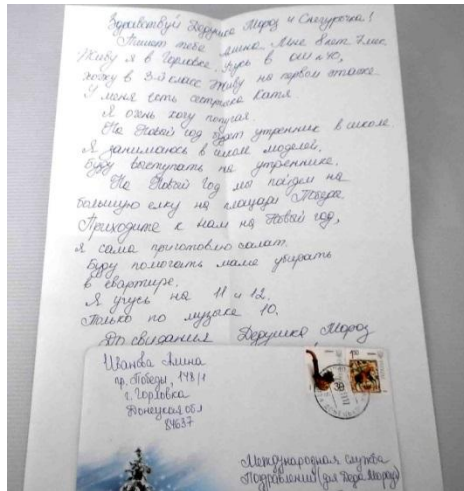 Здравствуй Дедушка Мороз и Снегурочка!
Пишет тебе Алина. Мне 8 лет 7 мес.
Живу я в Горловке. Учусь в ОШ №40,
хожу в 3-й класс. Живу на первом этаже.
У меня есть сестричка Катя.
Я очень хочу попугая.
На Новый год будет утренник в школе.
Я занимаюсь в школе моделей.
Буду выступать на утреннике.
На Новый Год мы пойдем на
большую елку на площади Победа
Приходите к нам на Новый год,
я сама приготовлю салат.
Буду помогать маме убирать
в квартире.
Я учусь на 11 и 12.
Только по музыке 10.
До свидания Дедушка Мороз
Иванова Алина
пр. Победы, 148/1
г. Горловка
Донецкая обл
84637
1,50
Международная служба
Поздравлений (для Деда Мороза)